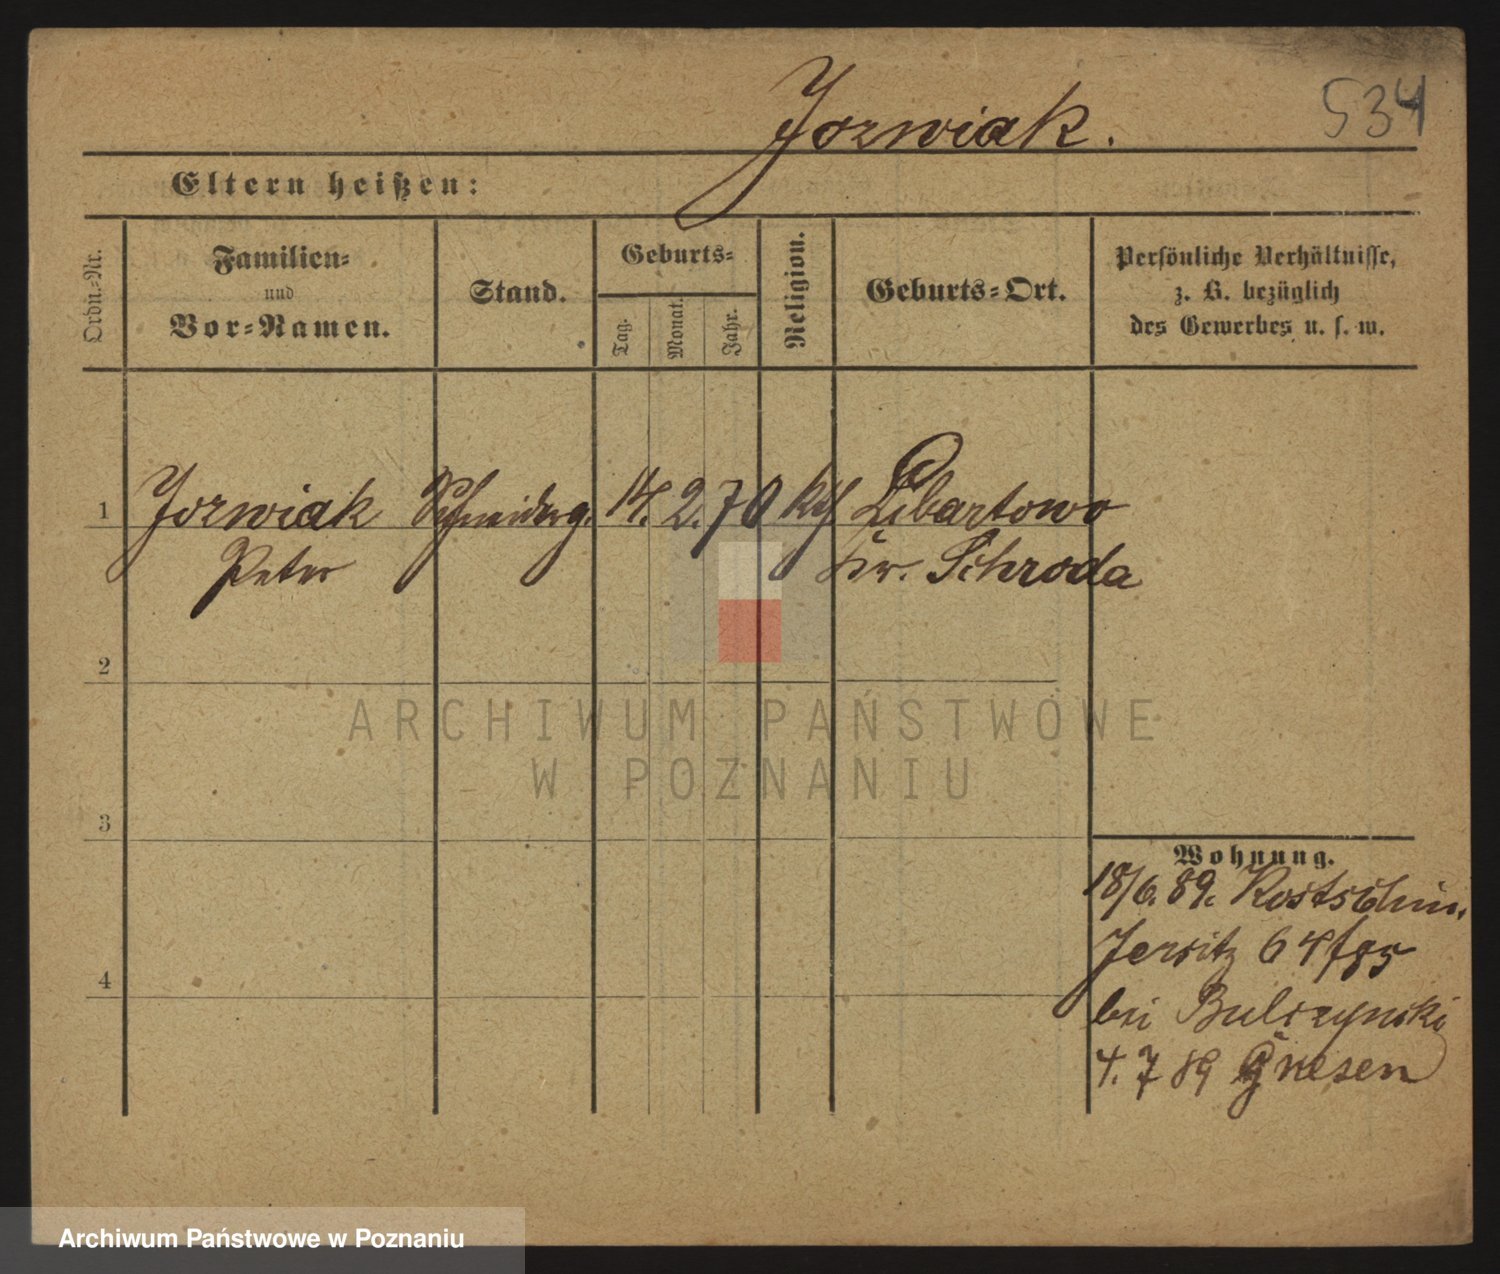 Jozwiak.
534
Eltern heißen:
Ordn.-Nr.
Familien-
und
Vor-Namen.
Stand.
Geburts-
Tag.
Monat.
Jahr.
Religion.
Geburts-Ort.
Persönliche Verhältnisse,
z. B. bezüglich
des Gewerbes u. s. w.
1 Jozwiak Schneiderg. 14. 2. 70 kth Libartowo
Peter Kr. Schroda
2
ARCHIWUM PAŃSTWOWE
W POZNANIU
3
Wohnung.
18/6. 89. Kostschin.
Jersitz 64/85
4
bei Bulczynski
4. 7 89 Gnesen
Archiwum Państwowe w Poznaniu